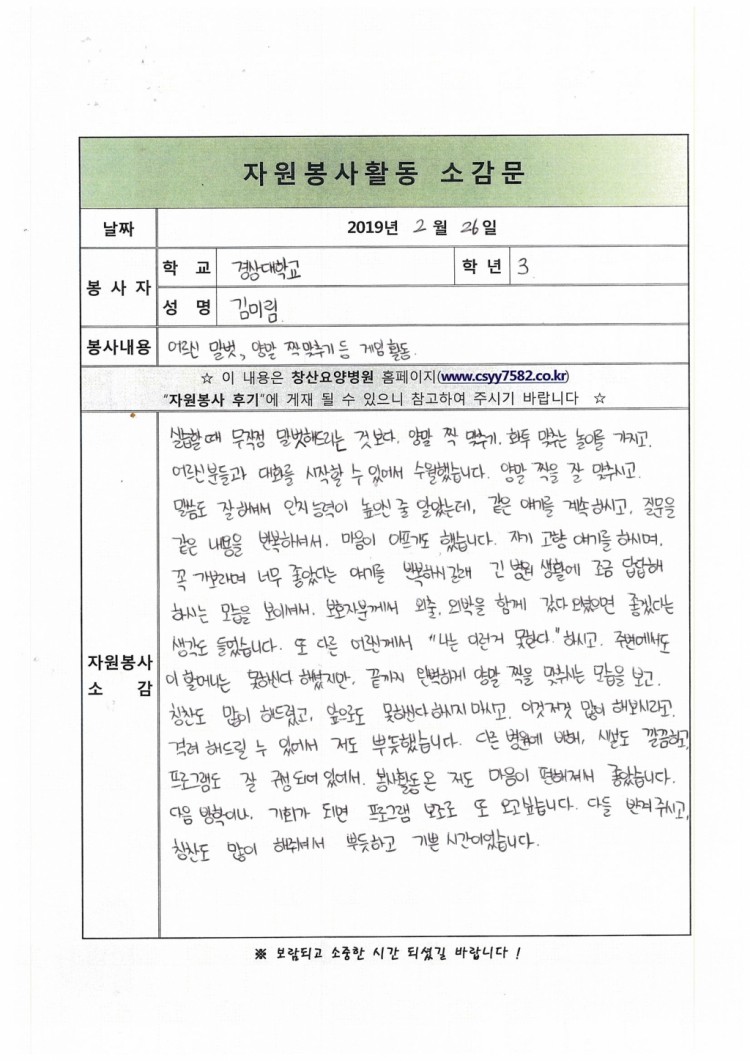 자원봉사활동 소감문
날짜 2019년 2월 26일
봉사자 학교 경상대학교 학년 3
성명 김미림
봉사내용 어르신 말벗, 양말 짝맞추기 등 게임활동.
☆ 이 내용은 창산요양병원 홈페이지(www.csyy7582.co.kr)
"자원봉사 후기"에 게재 될 수 있으니 참고하여 주시기 바랍니다 ☆
자원봉사
소감
실습할때 무작정 말벗해드리는 것보다. 양말 짝 맞추기. 화투 맞추는 놀이를 가지고.
어르신분들과 대화를 시작할 수 있어서 수월했습니다. 양말 짝을 잘 맞추시고.
말씀도 잘하셔서 인지능력이 높으신 줄 알았는데, 같은 얘기를 계속하시고, 질문을
같은 내용을 반복하셔서. 마음이 아프기도 했습니다. 자기 고향 얘기를 하시며,
꼭 가보라며 너무 좋았다는 얘기를 반복하시길래 긴 병원 생활에 조금 답답해
하시는 모습을 보이셔서. 보호자분께서 외출, 외박을 함께 갔다 오셨으면 좋겠다는
생각도 들었습니다. 또 다른 어르신께서 "나는 이런거 못한다." 하시고. 주변에서도
이 할머니는 못하신다 했었지만, 끝까지 완벽하게 양말 짝을 맞추시는 모습을 보고.
칭찬도 많이 해드렸고, 앞으로도 못하신다하시지 마시고. 이것저것 많이 해보시라고.
격려 해드릴 수 있어서 저도 뿌듯했습니다. 다른 병원에 비해, 시설도 깔끔하고,
프로그램도 잘 구성되어 있어서. 봉사활동 온 저도 마음이 편해져서 좋았습니다.
다음 방학이나, 기회가 되면 프로그램 보조로 또 오고싶습니다. 다들 반겨주시고,
칭찬도 많이 해주셔서 뿌듯하고 기쁜 시간이었습니다.
※ 보람되고 소중한 시간 되셨길 바랍니다 !